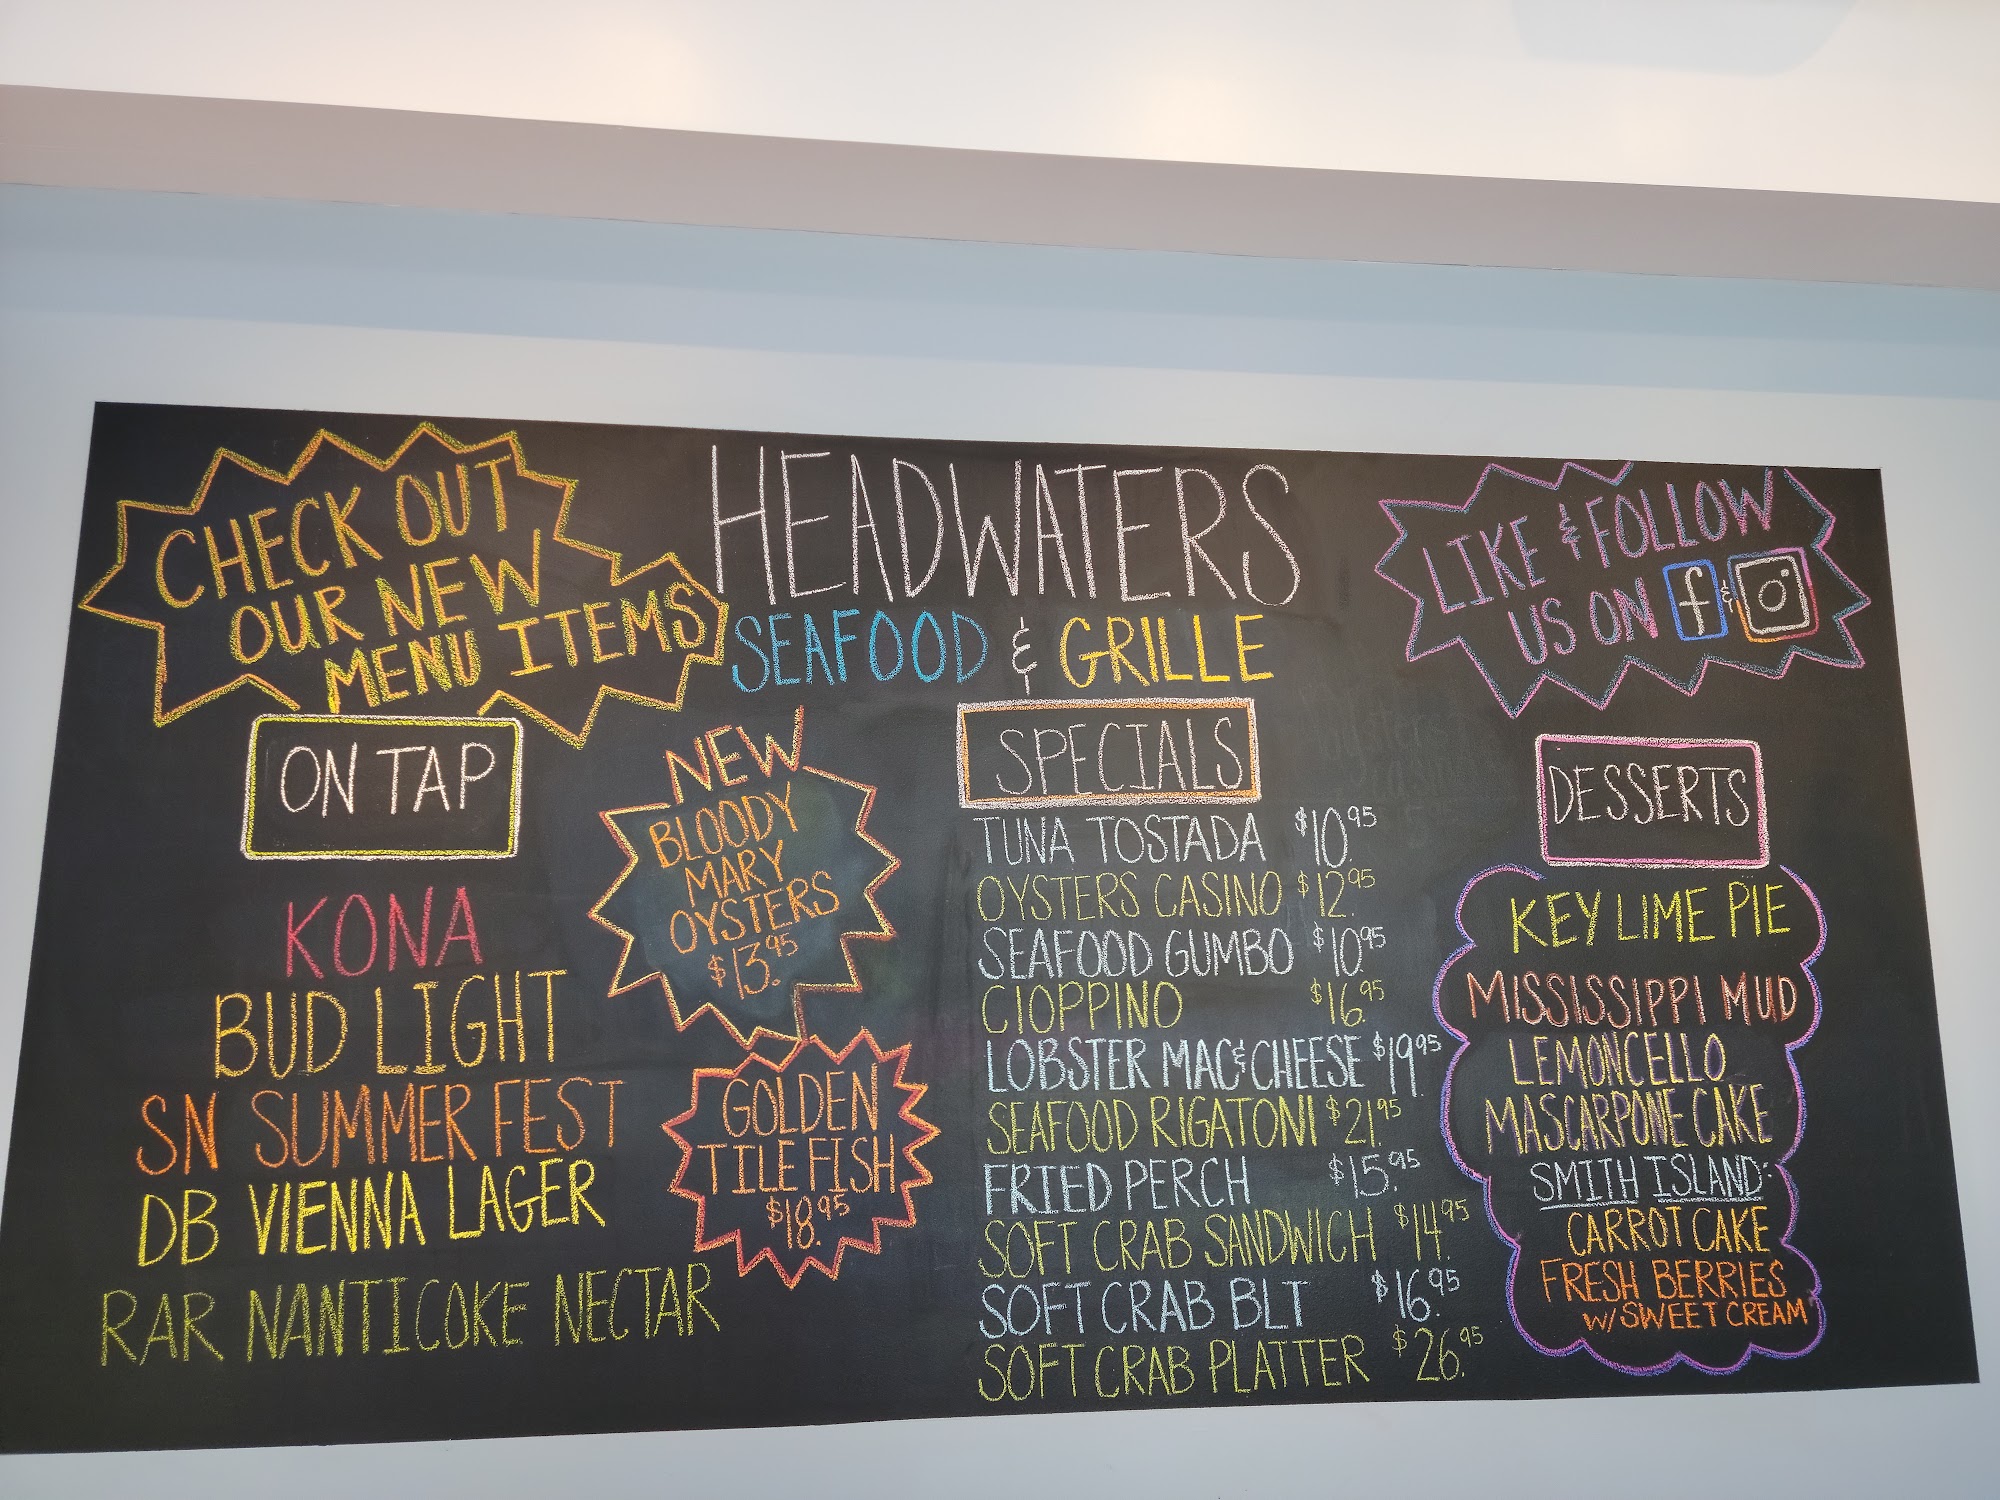 CHECK OUT
OUR NEW
MENU ITEMS
HEADWATERS
SEAFOOD & GRILLE
LIKE & FOLLOW
US ON f &
ON TAP
KONA
BUD LIGHT
SN SUMMER FEST
DB VIENNA LAGER
RAR NANTICOKE NECTAR
NEW
BLOODY
MARY
OYSTERS
$13.95
GOLDEN
TILE FISH
$18.95
SPECIALS
TUNA TOSTADA $10.95
OYSTERS CASINO $12.95
SEAFOOD GUMBO $10.95
CIOPPINO $16.95
LOBSTER MAC & CHEESE $19.95
SEAFOOD RIGATONI $21.95
FRIED PERCH $15.95
SOFT CRAB SANDWICH $14.95
SOFT CRAB BLT $16.95
SOFT CRAB PLATTER $26.95
DESSERTS
KEY LIME PIE
MISSISSIPPI MUD
LEMONCELLO
MASCARPONE CAKE
SMITH ISLAND:
CARROT CAKE
FRESH BERRIES
W/ SWEET CREAM